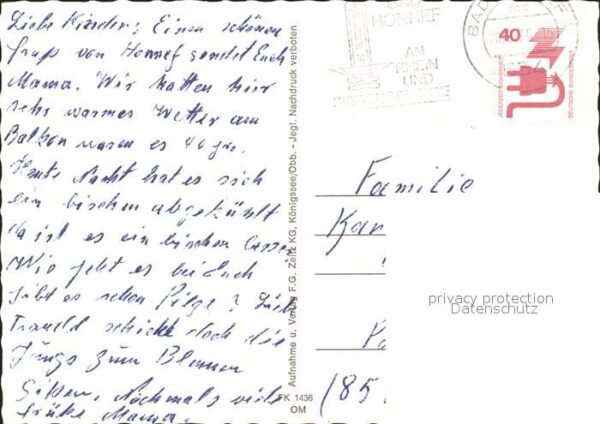 Liebe Kinder; Einen schönen
Gruß von Honnef sendet Euch
Mama. Wir hatten hier
sehr warmes Wetter am
Balkon waren es 40 gr.
Heute Nacht hat es sich
ein bischen abgekühlt
da ist es ein bischen besser
Wie geht es bei Euch
gibt es schon Pilze? Liebe
Traudl schicke doch die
Jungs zum Blumen
Gißen. Nochmals viele
Grüße Mama.
Aufnahme u. Verlag F.G. Zeitz KG, Königssee/Obb. - Jegl. Nachdruck verboten
FK 1436
OM
BAD
HONNEF
AM
RHEIN
UND
BAD
40
JEDERZEIT SICHERHEIT
DEUTSCHE BUNDESPOST
Familie
Kar
(85
privacy protection
Datenschutz